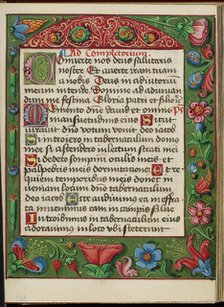 Ad Completorium.
Converte nos deus salutaris
noster Et averte iram tuam
a nobis Deus in adiutorium
meum intende Domine ad adiuvan
dum me festina Gloria patri et filio
Memento domine david et omnis
mansuetudinis eius Sicut
iuravit domino votum vovit deo iacob
Si introiero in tabernaculum domus
mee si ascendero in lectum strati mei
Si dedero somnum oculis meis et
palpebris meis dormitationem Et
requiem temporibus meis donec in
veniam locum domino tabernaculum
deo iacob Ecce audivimus eam in
effrata invenimus eam in campis silve
Introibimus in tabernaculum eius
adorabimus in loco ubi steterunt